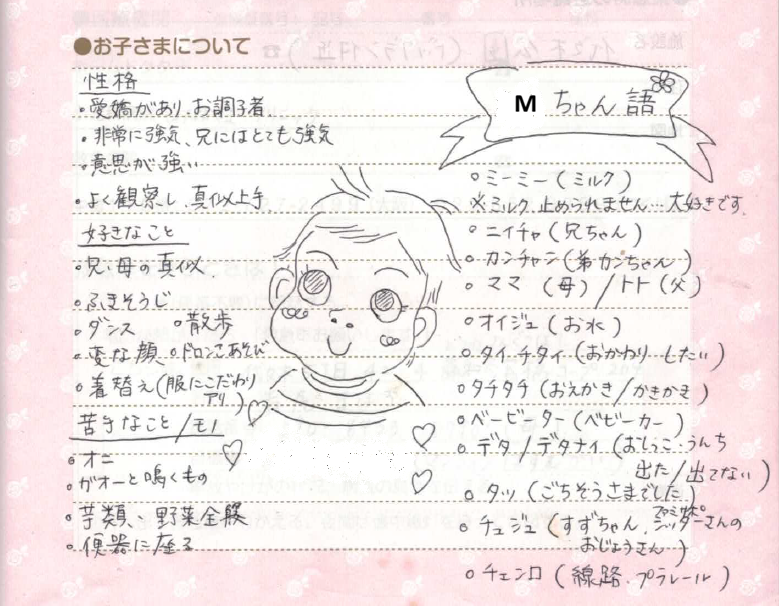 ●お子さまについて
性格
・愛嬌があり お調子者
・非常に強気、兄にはとても強気
・意思が強い
・よく観察し 真似上手
好きなこと
・兄、母の真似
・ふきそうじ
・ダンス ・散歩
・変な顔 ・ドロンこあそび
・着替え(服にこだわりアリ)
苦手なこと/モノ
・オニ
・ガオーと鳴くもの
・芋類、野菜全般
・便器に座る
Mちゃん語
○ミーミー(ミルク)
※ミルク 止められません…大好きです。
○ニイチャ(兄ちゃん)
○カンチャン(弟カンちゃん)
○ママ (母)/トト(父)
○オイジュ(お水)
○タイチタイ(おかわりしたい)
○タチタチ(おえかき/かきかき)
○ベービーター(ベビーカー)
○デタ/デタナイ(おしっこ・うんち
出た/出てない)
○タッ(ごちそうさまでした)
○チュジュ(すずちゃん・シッターさんの
おじょうさん)
○チェンロ(線路・プラレール)